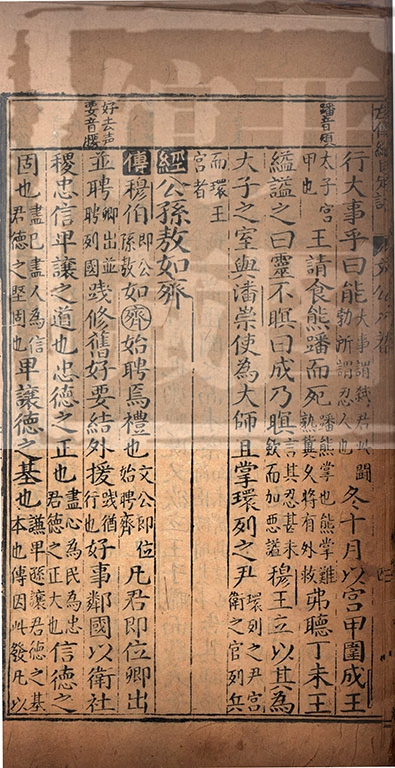 蹯音煩
行大事乎曰能大事謂弒君此勃所謂忍人也冬十月以宮甲圍成王
太子宮甲也王請食熊蹯而死蹯熊掌也熊掌難熟冀久將有外救弗聽丁未王
縊諡之曰靈不瞑曰成乃瞑言其忍甚未歛而加惡諡穆王立以其為
大子之室與潘崇使為大師且掌環列之尹環列之尹宮衛之官列兵
而環王宮者
經公孫敖如齊
傳穆伯即公孫敖如齊始聘焉禮也文公即位始聘齊凡君即位卿出
好去声
要音腰
並聘卿出並聘列國踐修舊好要結外援踐猶行也好事鄰國以衛社
稷忠信卑讓之道也忠德之正也盡心為民為忠君德之正大也信德之
固也盡己盡人為信君德之堅固也卑讓德之基也謙卑遜讓君德之基本也傳因此發凡以